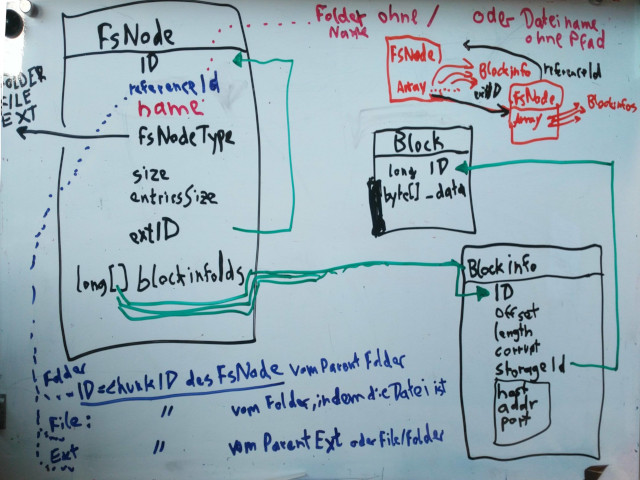 FsNode
ID
referenceId
name
FsNodeType
size
entriesSize
extID
long[] blockinfoIds
FOLDER
FILE
EXT
Folder ohne / oder Dateiname
Name ohne Pfad
FsNode
Array
Blockinfo
extID
referenceId
FsNode
Array
Blockinfos
Block
long ID
byte[] _data
Blockinfo
ID
offset
length
corrupt
storageId
host
addr
port
Folder
ID=chunkID des FsNode vom Parent Folder
File: " vom Folder, indem die Datei ist
Ext " vom Parent Ext oder File/Folder